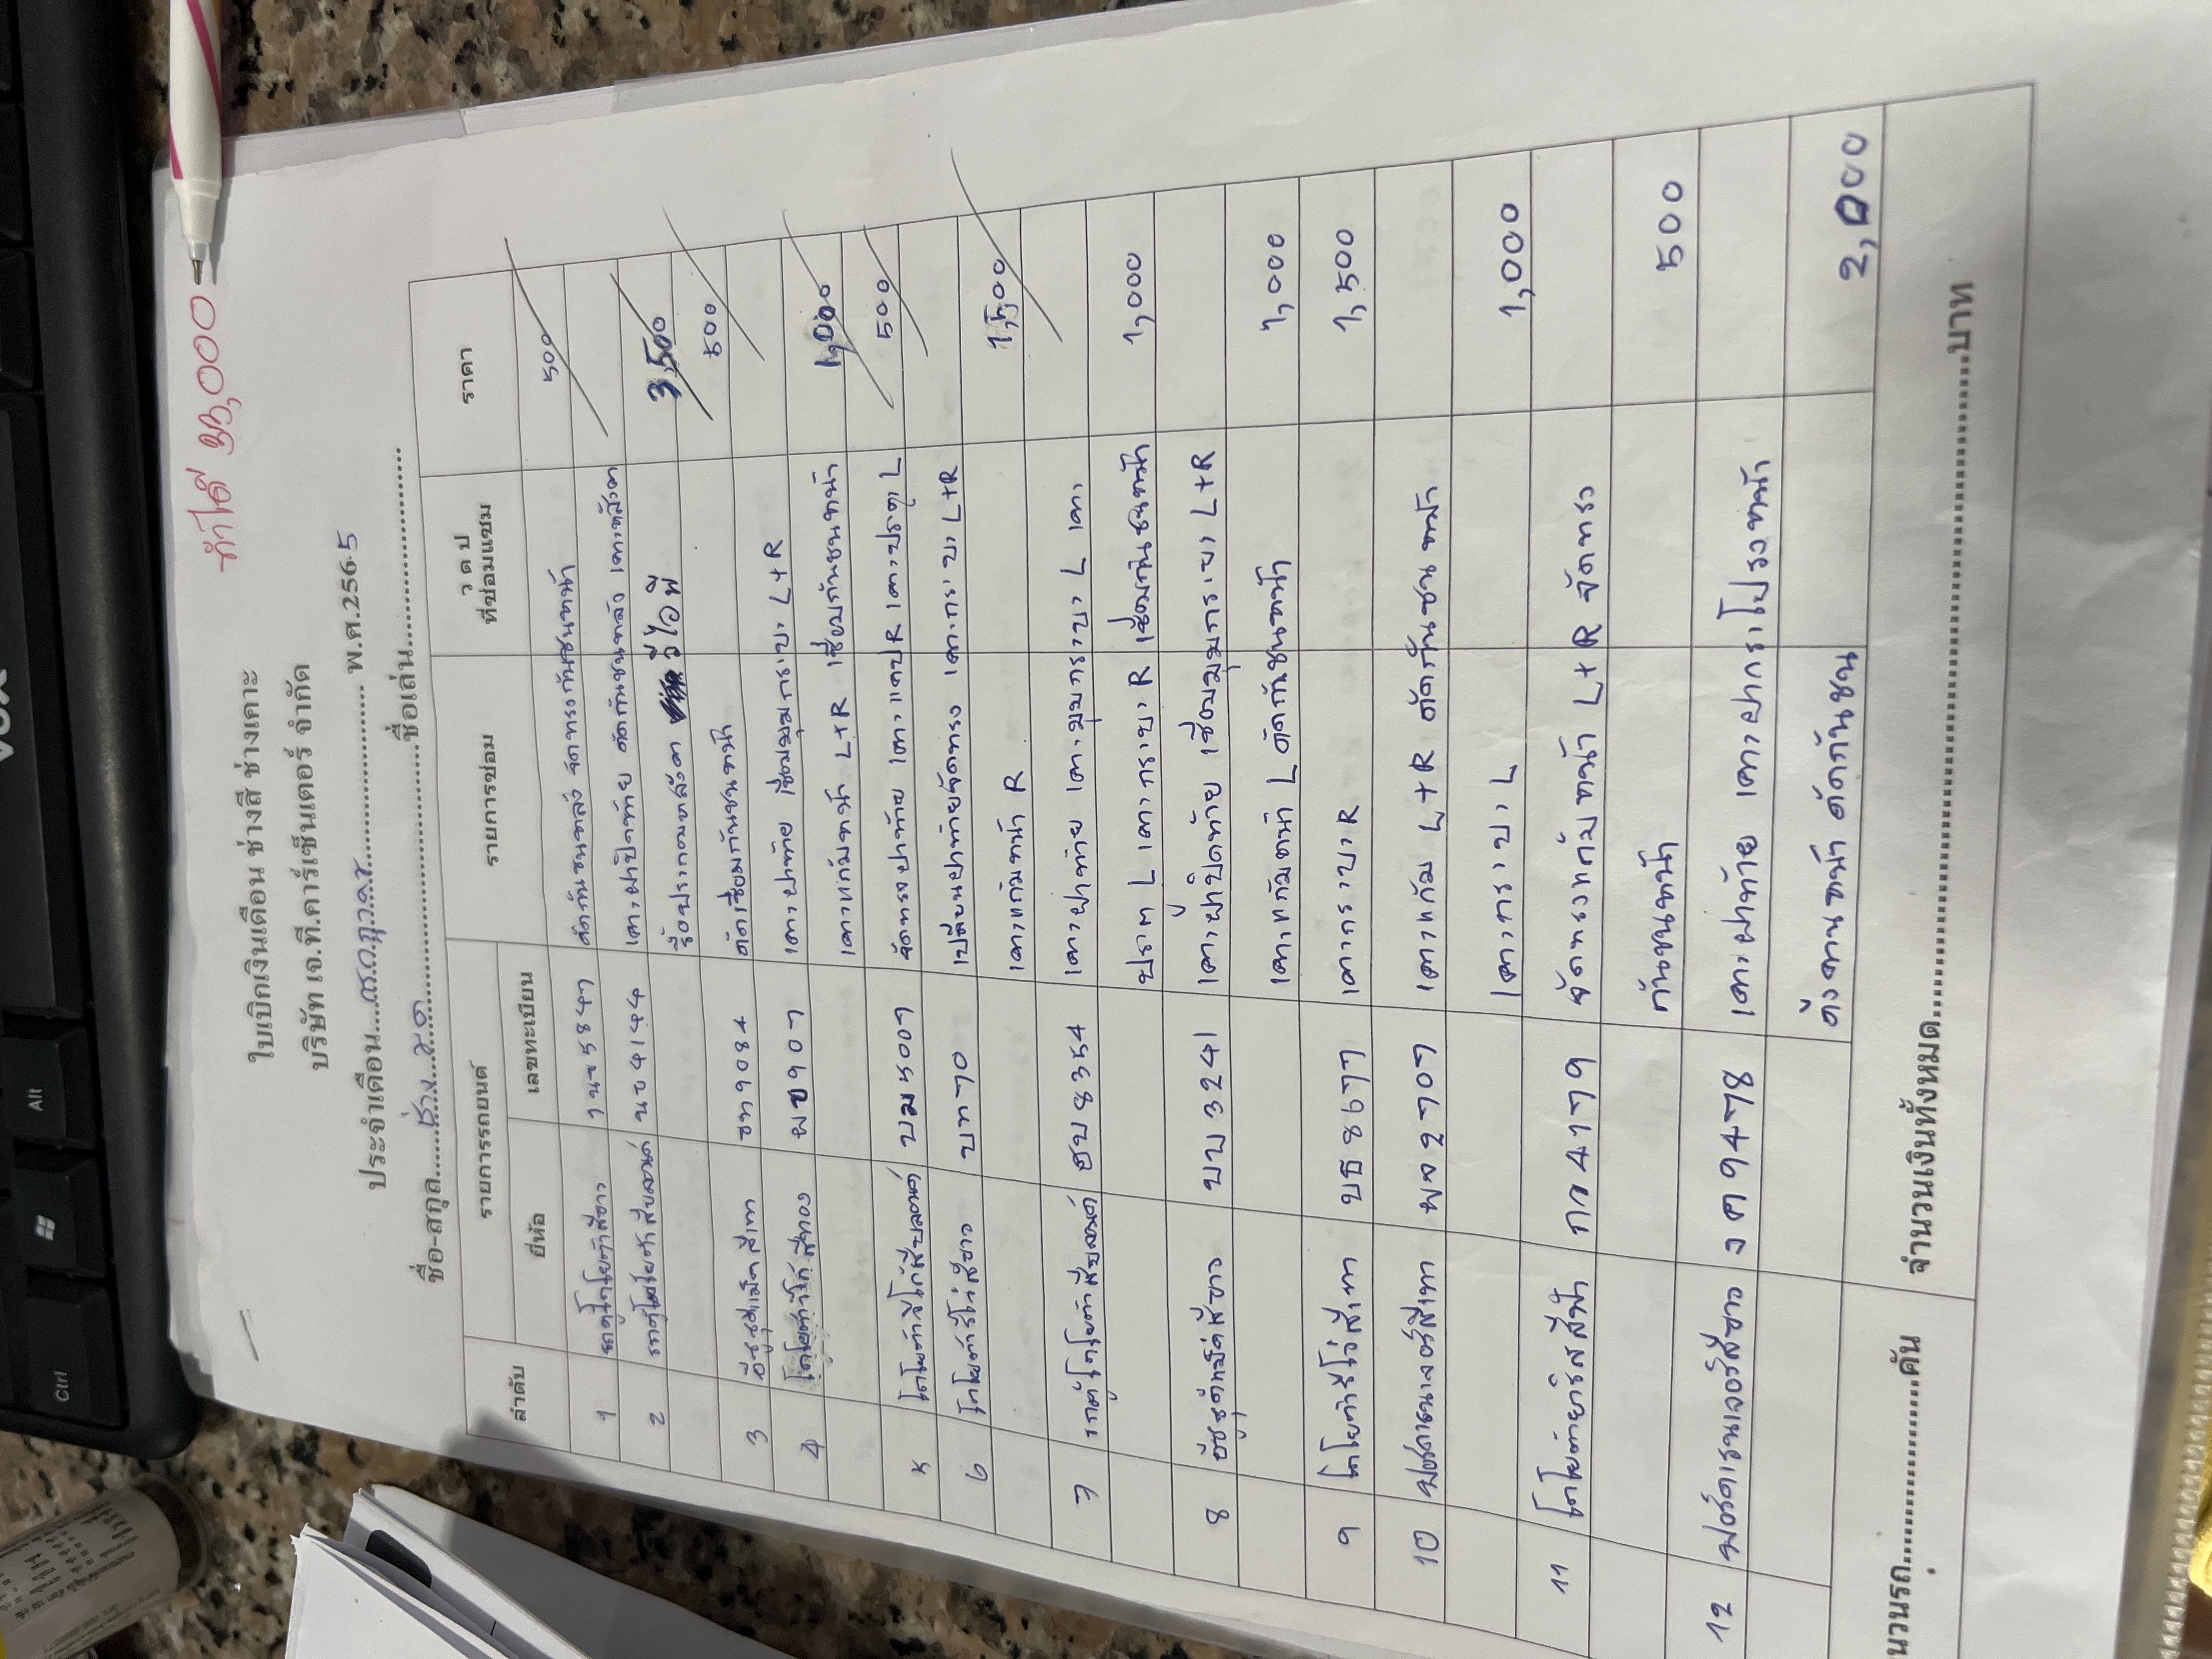 ทำได้ 33,000
ใบเบิกเงินเดือน ช่างสี ช่างเคาะ
บริษัท เจ.ที.คาร์เซ็นเตอร์ จำกัด
ประจำเดือน....กรกฎาคม.... พ.ศ.2565
ชื่อ-สกุล....ช่าง....ชื่อเล่น....
ลำดับ รายการรถยนต์ รายการซ่อม ว ด ป ที่ซ่อมแซม ราคา
ยี่ห้อ เลขทะเบียน
1 รถตู้โตโยต้าสีขาว 1นข 5847 ดัดกันชนหลัง จัดทรงกันชนหน้า 500
2 รถตู้โตโยต้าสีบลอนด์ นข 4144 เคาะฝาปิดท้าย ดัดกันชนหลัง เคาะหลังคา
รื้อประกอบหลังคา วีไอพี 3,500
3 อีซูซุสีเทา ชท 9084 ดัดเชื่อมกันชนหน้า 500
4 โตโยต้าวีโก้สีทอง ผข 907 เคาะฝาท้าย เชื่อมมุมกระบะ L+R
เคาะแก้มหน้า L+R เชื่อมกันชนหน้า 1,000
5 โตโยต้าวีโก้สีบลอนด์ บม 5007 จัดทรงฝาท้าย เคาะแคป R เคาะประตู L 500
6 โตโยต้ารีโว่สีขาว บท 70 เปลี่ยนฝาท้ายจัดทรง เคาะกระบะ L+R
เคาะแก้มหน้า R 1,500
7 รถตู้โตโยต้าสีบลอนด์ ฮบ 8354 เคาะฝาท้าย เคาะมุมกระบะ L เคาะ
L เคาะกระบะ R เชื่อมกันชนหน้า 1,000
8 อีซูซุดีแม็คสีขาว บบ 3241 เคาะฝาปิดท้าย เชื่อมมุมกระบะ L+R
เคาะแก้มหน้า L ดัดกันชนหน้า 1,000
9 โตโยต้ารีโว่สีเทา บธ 8677 เคาะกระบะ R 1,500
10 ฟอร์ดเรนเจอร์สีเทา ผจ 2707 เคาะแก้ม L+R ดัดกันชนหน้า
เคาะกระบะ L 1,000
11 โตโยต้ายาริสสีฟ้า กง 4179 จัดทรงแก้มหน้า L+R จัดทรง
กันชนหน้า 500
12 ฟอร์ดเรนเจอร์สีขาว งค 9478 เคาะฝาท้าย เคาะฝากระโปรงหน้า
ดึงคานหน้า ดัดกันชน 2,000
นวนรถ....คัน จำนวนเงินทั้งหมด....บาท
Ctrl
Alt